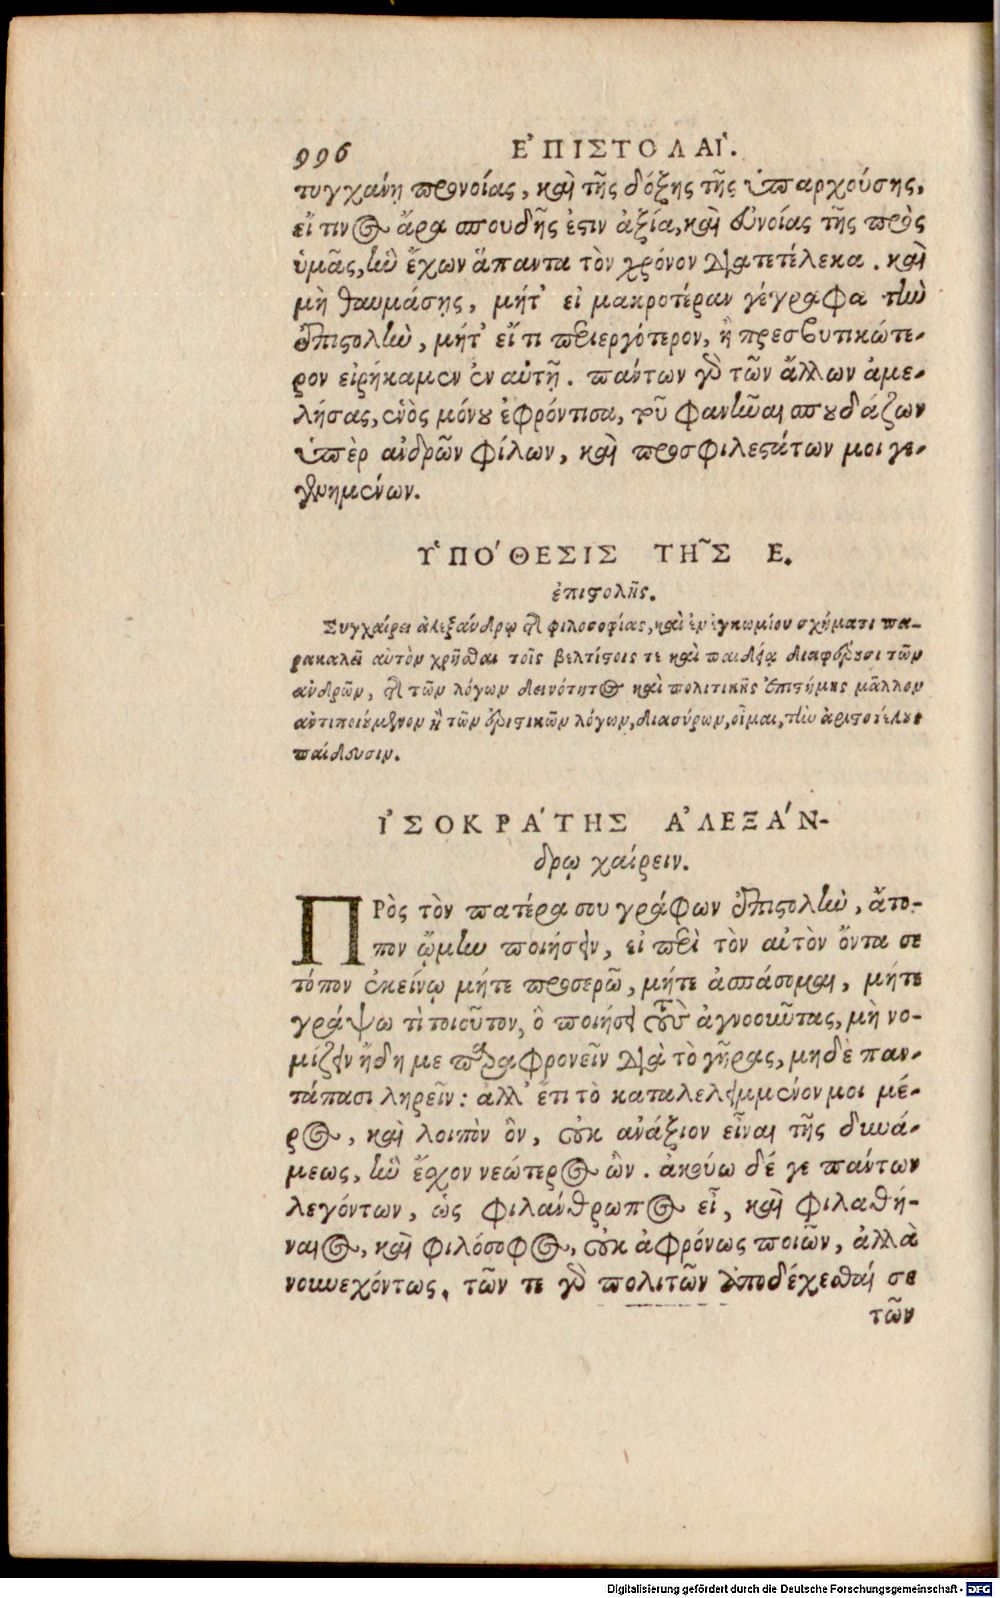 996 ΕʼΠΙΣΤΟΛΑΊ.
τυγχάνῃ προνοίας, καὶ τῆς δόξης τῆς ὑπαρχούσης,
εἴ τινος ἄρα σπουδῆς ἐστιν ἀξία, καὶ εὐνοίας τῆς πρὸς
ὑμᾶς, ἣν ἔχων ἅπαντα τὸν χρόνον διατετέλεκα. καὶ
μὴ θαυμάσῃς, μήτ' εἰ μακροτέραν γέγραφα τὴν
ἐπιστολὴν, μήτ' εἴ τι περιεργότερον, ἢ πρεσβυτικώτε-
ρον εἰρήκαμεν ἐν αὐτῇ. πάντων γὰρ τῶν ἄλλων ἀμε-
λήσας, ἑνὸς μόνου ἐφρόντισα, τοῦ φανῆναι σπουδάζων
ὑπὲρ ἀνδρῶν φίλων, καὶ προσφιλεστάτων μοι γε-
γενημένων.
ΥʽΠΟʹΘΕΣΙΣ ΤΗ͂Σ Ε.
ἐπιστολῆς.
Συγχαίρει ἀλεξάνδρῳ ἐπὶ φιλοσοφίας, καὶ ἐν ἐγκωμίου σχήματι πα-
ρακαλεῖ αὐτὸν χρῆσθαι τοῖς βελτίστοις τε καὶ παιδείᾳ διαφέρουσι τῶν
ἀνδρῶν, ἐπὶ τῶν λόγων δεινότητος καὶ πολιτικῆς ἐπιστήμης μᾶλλον
ἀντιποιούμενον ἢ τῶν ἐριστικῶν λόγων, διασύρων, οἶμαι, τὴν ἀριστοτέλους
παίδευσιν.
ἸΣΟΚΡΑʹΤΗΣ ΑʼΛΕΞΑʹΝ-
δρῳ χαίρειν.
ΠΡὸς τὸν πατέρα σου γράφων ἐπιστολὴν, ἄτο-
πον ᾤμην ποιήσειν, εἰ περὶ τὸν αὐτὸν ὄντα σε
τόπον ἐκείνῳ μήτε προσερῶ, μήτε ἀσπάσομαι, μήτε
γράψω τὶ τοιοῦτον, ὃ ποιήσει τοὺς ἀγνοοῦντας, μὴ νο-
μίζειν ἤδη με παραφρονεῖν διὰ τὸ γῆρας, μηδὲ παν-
τάπασι ληρεῖν: ἀλλ' ἔτι τὸ καταλελειμμένον μοι μέ-
ρος, καὶ λοιπὸν ὂν, οὐκ ἀνάξιον εἶναι τῆς δυνά-
μεως, ἣν ἔσχον νεώτερος ὤν. ἀκούω δέ γε πάντων
λεγόντων, ὡς φιλάνθρωπος εἶ, καὶ φιλαθή-
ναιος, καὶ φιλόσοφος, οὐκ ἀφρόνως ποιῶν, ἀλλὰ
νουνεχόντως. τῶν τε γὰρ πολιτῶν ἀποδέχεσθαί σε
τῶν
Digitalisierung gefördert durch die Deutsche Forschungsgemeinschaft - DFG